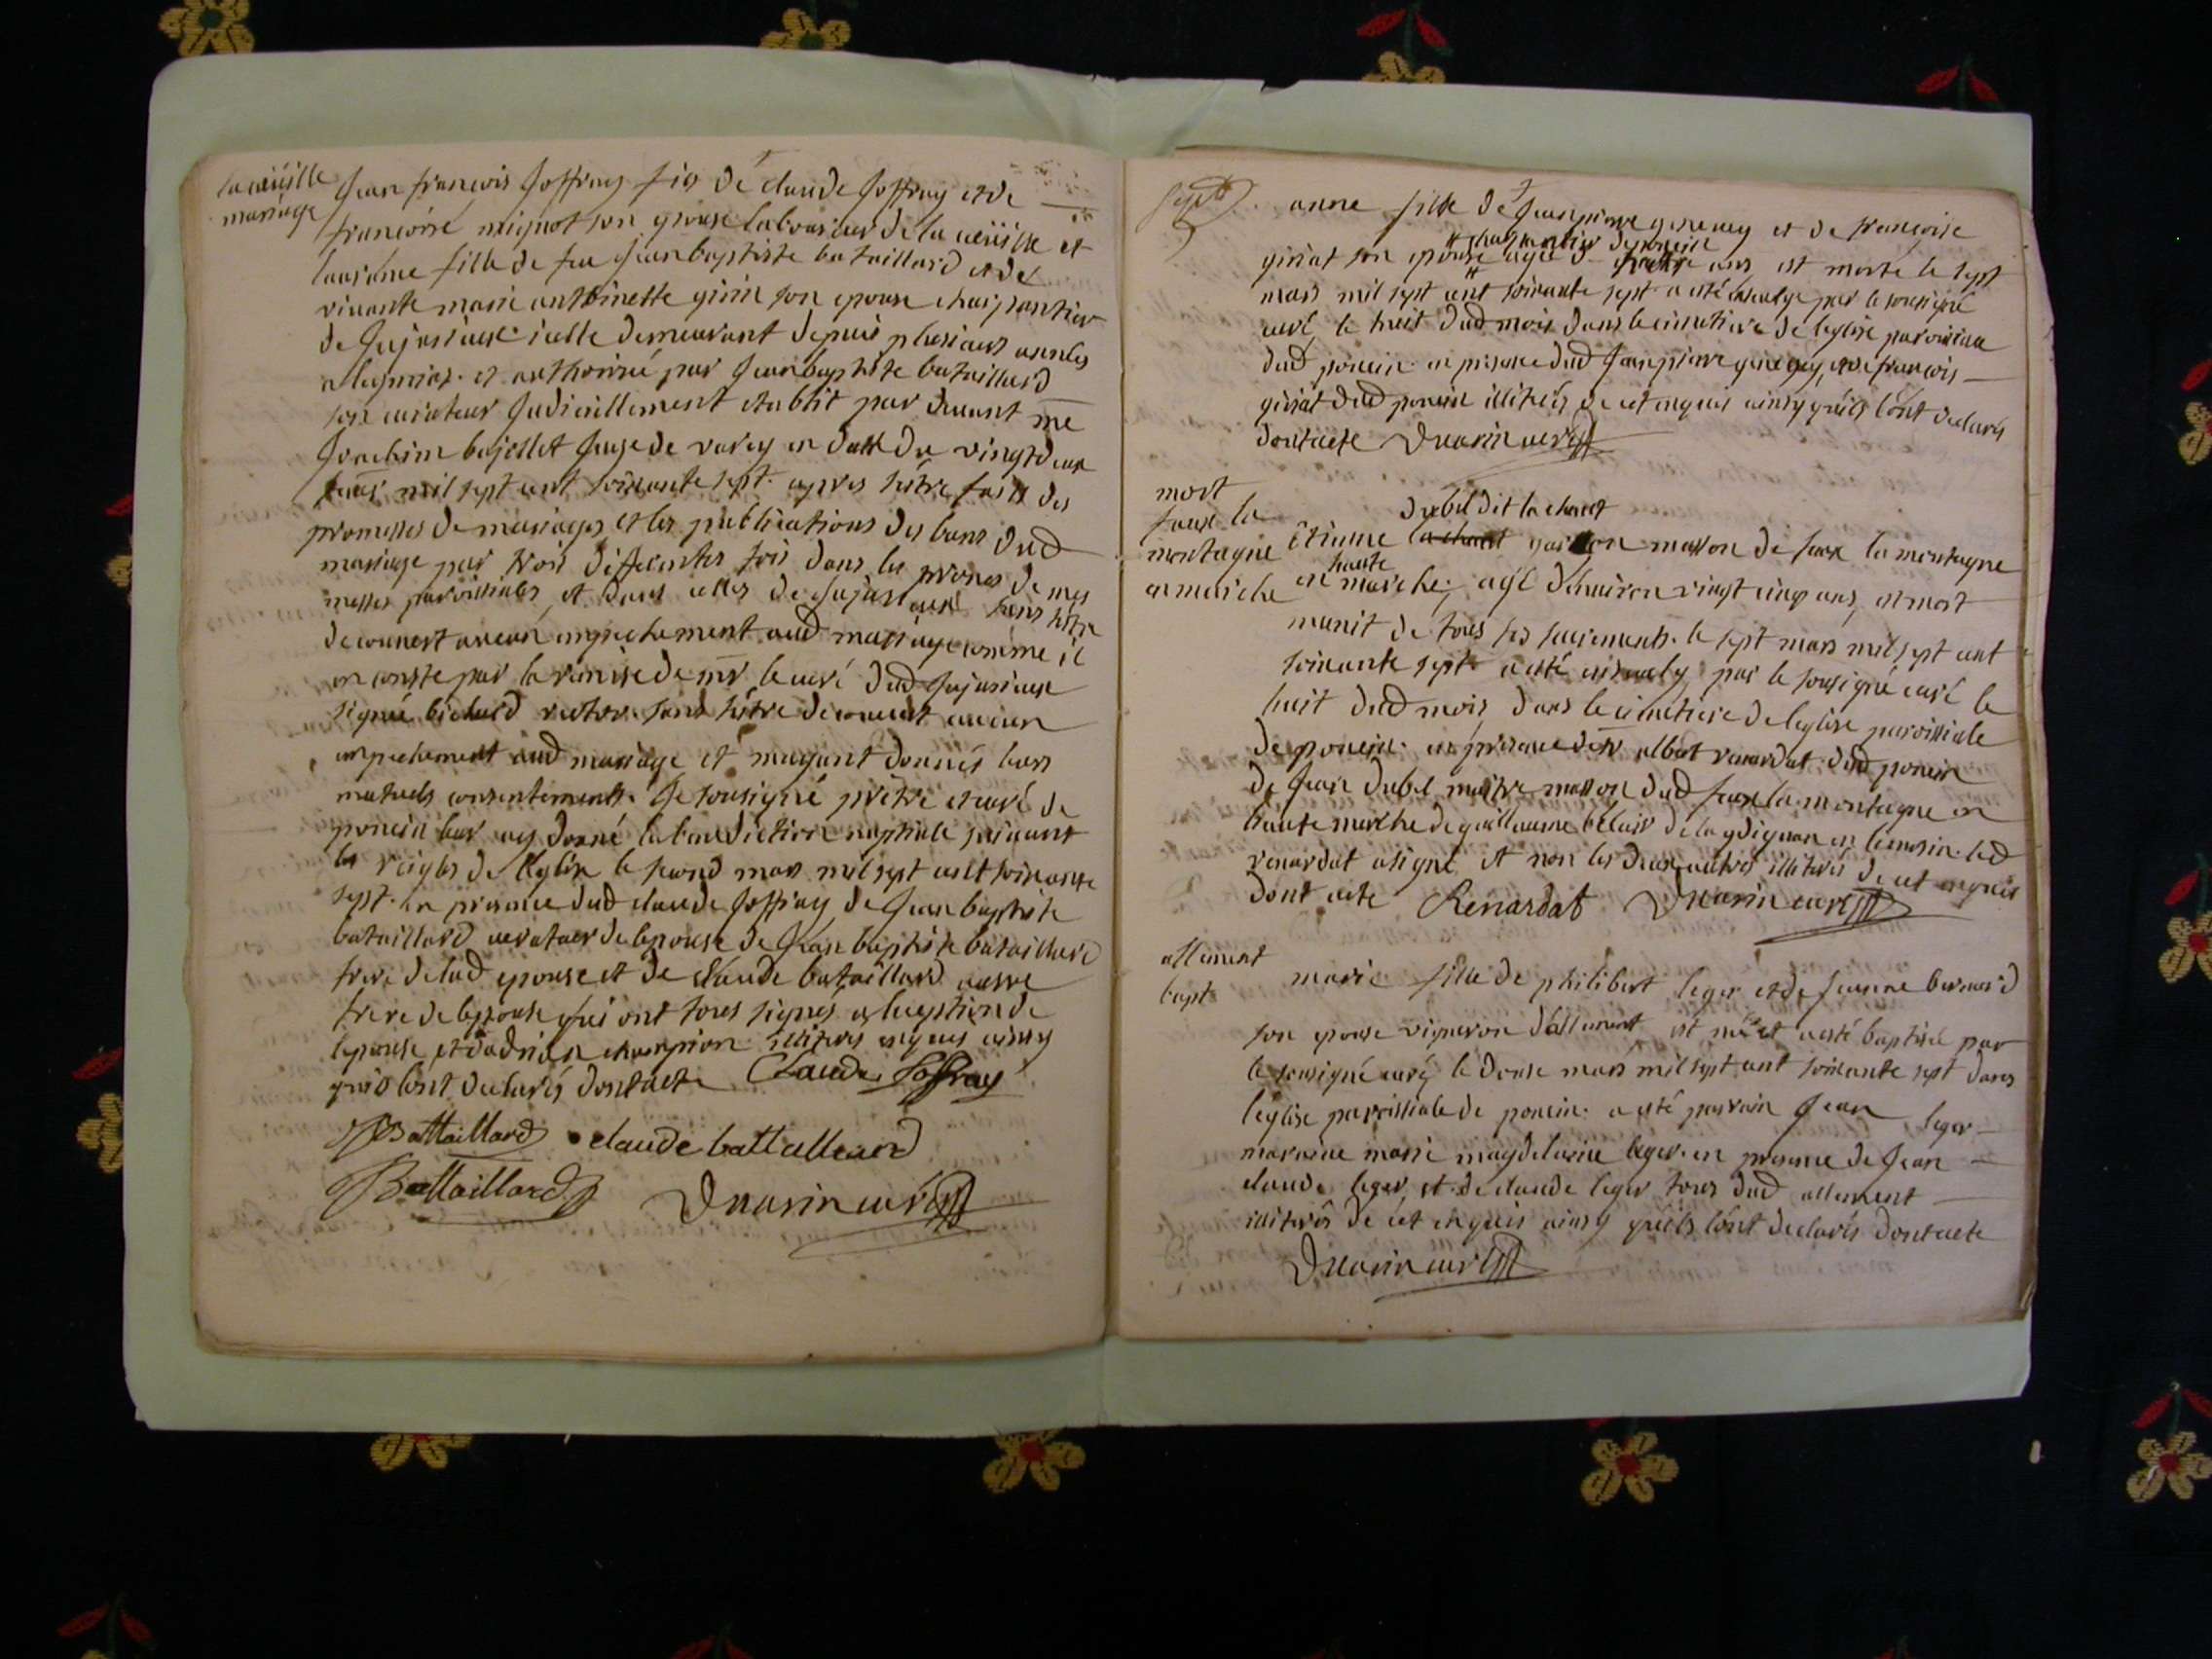 la cuëille
mariage
jean françois joffray fis de claude joffray et de
françoise mignot son epouse laboureur de la cuëille et
fille de feu jean baptiste bataillard et de
vivante marie anthoinette girin son epouse charpantier
de jujurieux icelle demeurant depuis plusieurs années
a et authorisé par jean baptiste bataillard
son curateur judiciellement etablit par devant me
joachim bejollet juge de varey en datte du vingtdeux
mil sept cent soixante sept apres s'etre faits des
promesses de mariages et les publications des bans dud
mariage par trois differentes fois dans les prones de mes
messes paroissiales et dans celles de jujurieux sans s'etre
decouvert aucun empechement aud mariage comme il
en conste par la remise de mr le curé dud jujurieux
signée sans s'etre decouvert aucun
empechement aud mariage et m'ayant donnés leurs
mutuels consentements je sousigné prêtre et curé de
poncin leur ay donné la benediction nuptiale suivant
les reigles de l'eglise le second mars mil sept cent soixante
sept en presence dud claude joffray de jean baptiste
bataillard curateur de lepouse de jean baptiste bataillard
frere de lad epouse et de claude bataillard aussy
frere de lepouse qui ont tous signés a l'exception de
lepouse et dadrian champion illiterés enquis ainsy
quils lont declarés dont acte Claude Joffray
Battaillard claude battalleard
Battaillard Duvarin curé
anne fille de jean pierre genevey et de françoise
giriat son epouse agée d ans est morte le sept
charpantier de poncin
mars mil sept cent soixante sept a esté ensevelye par le sousigné
curé le huit dud mois dans le cimetiere de leglise paroissiale
dud poncin en presence dud jean pierre genevey et de françois
giriat dud poncin illiterés de cet enquis ainsy quils lont declarés
dont acte Duvarin curé
mort
faux la
montagne
en marche
dubel dit la chant
etienne la chant garson masson de faux la montagne
en haute marche, agé denviron vingt cinq ans, est mort
munit de tous ses sacrements le sept mars mil sept cent
soixante sept a esté ensevely par le sousigné curé le
huit dud mois dans le cimetiere de leglise paroissiale
de poncin en presence de sr albert renardat dud poncin
de jean dubel maitre masson dud faux la montagne en
haute marche de guillaume belair de en lemosin led
renardat a signé et non les deux autres illiterés de cet enquis
dont acte Renardat Duvarin curé
allement
bapt
marie fille de philibert leger et de jeanne bernard
son epouse vigneron d'allement est née et a esté baptisée par
le sousigné curé le douse mars mil sept cent soixante sept dans
l'eglise parroissiale de poncin a esté parrain jean leger
maraine marie magdelaine leger en presence de jean
claude leger et de claude leger tous dud allement
illiterés de cet enquis ainsy quils lont declarés dont acte
Duvarin curé